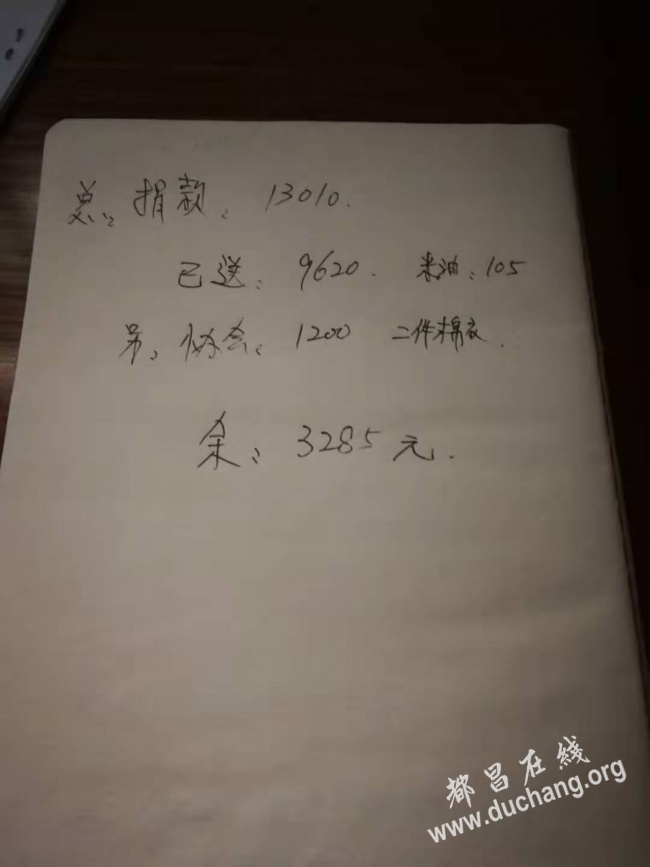 总:捐款:13010.
已送:9620. 米油:105
另:协会:1200 二件棉衣.
余:3285元.
都昌在线
www.duchang.org